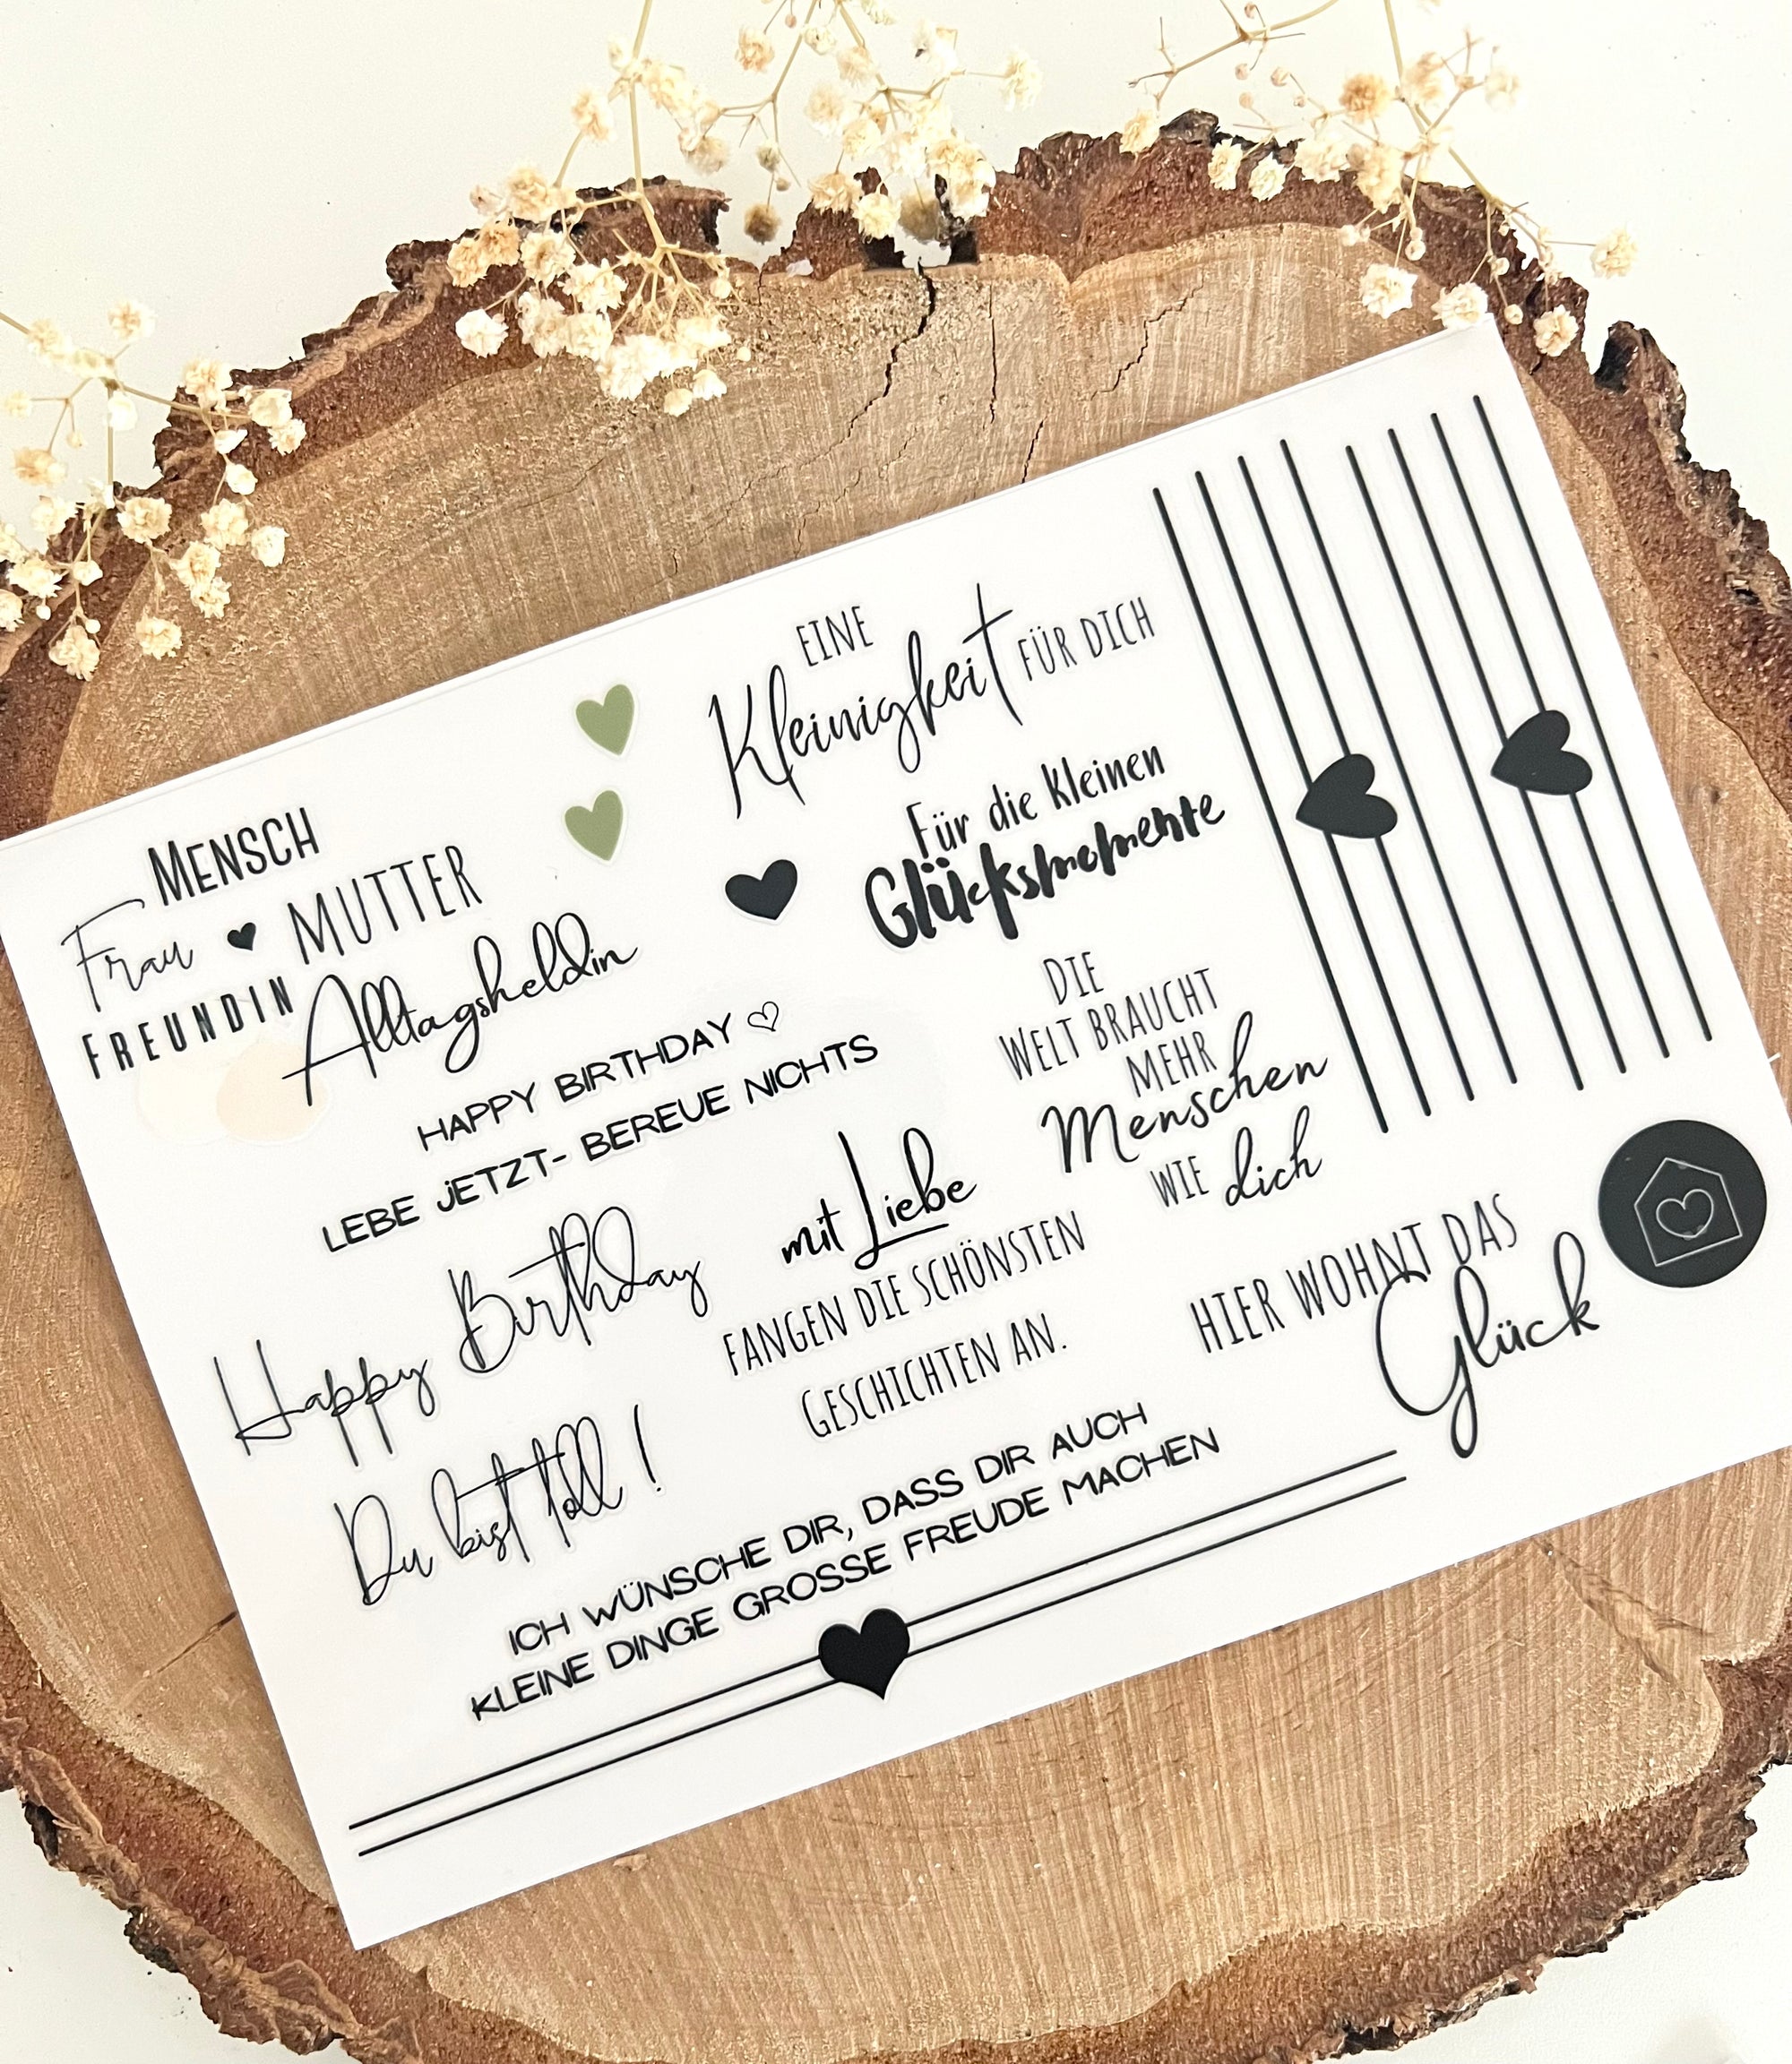 MENSCH
Frau MUTTER
FREUNDIN Alltagsheldin
HAPPY BIRTHDAY
LEBE JETZT- BEREUE NICHTS
Happy Birthday
Du bist toll !
EINE
Kleinigkeit FÜR DICH
Für die kleinen
Glücksmomente
DIE
WELT BRAUCHT
MEHR
Menschen
WIE dich
mit Liebe
FANGEN DIE SCHÖNSTEN
GESCHICHTEN AN.
HIER WOHNT DAS
Glück
ICH WÜNSCHE DIR, DASS DIR AUCH
KLEINE DINGE GROSSE FREUDE MACHEN